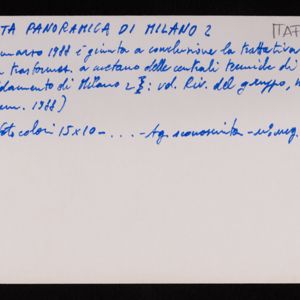 TA PANORAMICA DI MILANO 2
marzo 1988 è giunta a conclusione la trattativa
trasformaz. a metano delle centrali termiche di
damento di Milano 2 : vol. Riv. del gruppo, n
1988)
foto colori 15x10 - . . . - Ag. sconosciuta - n° neg.